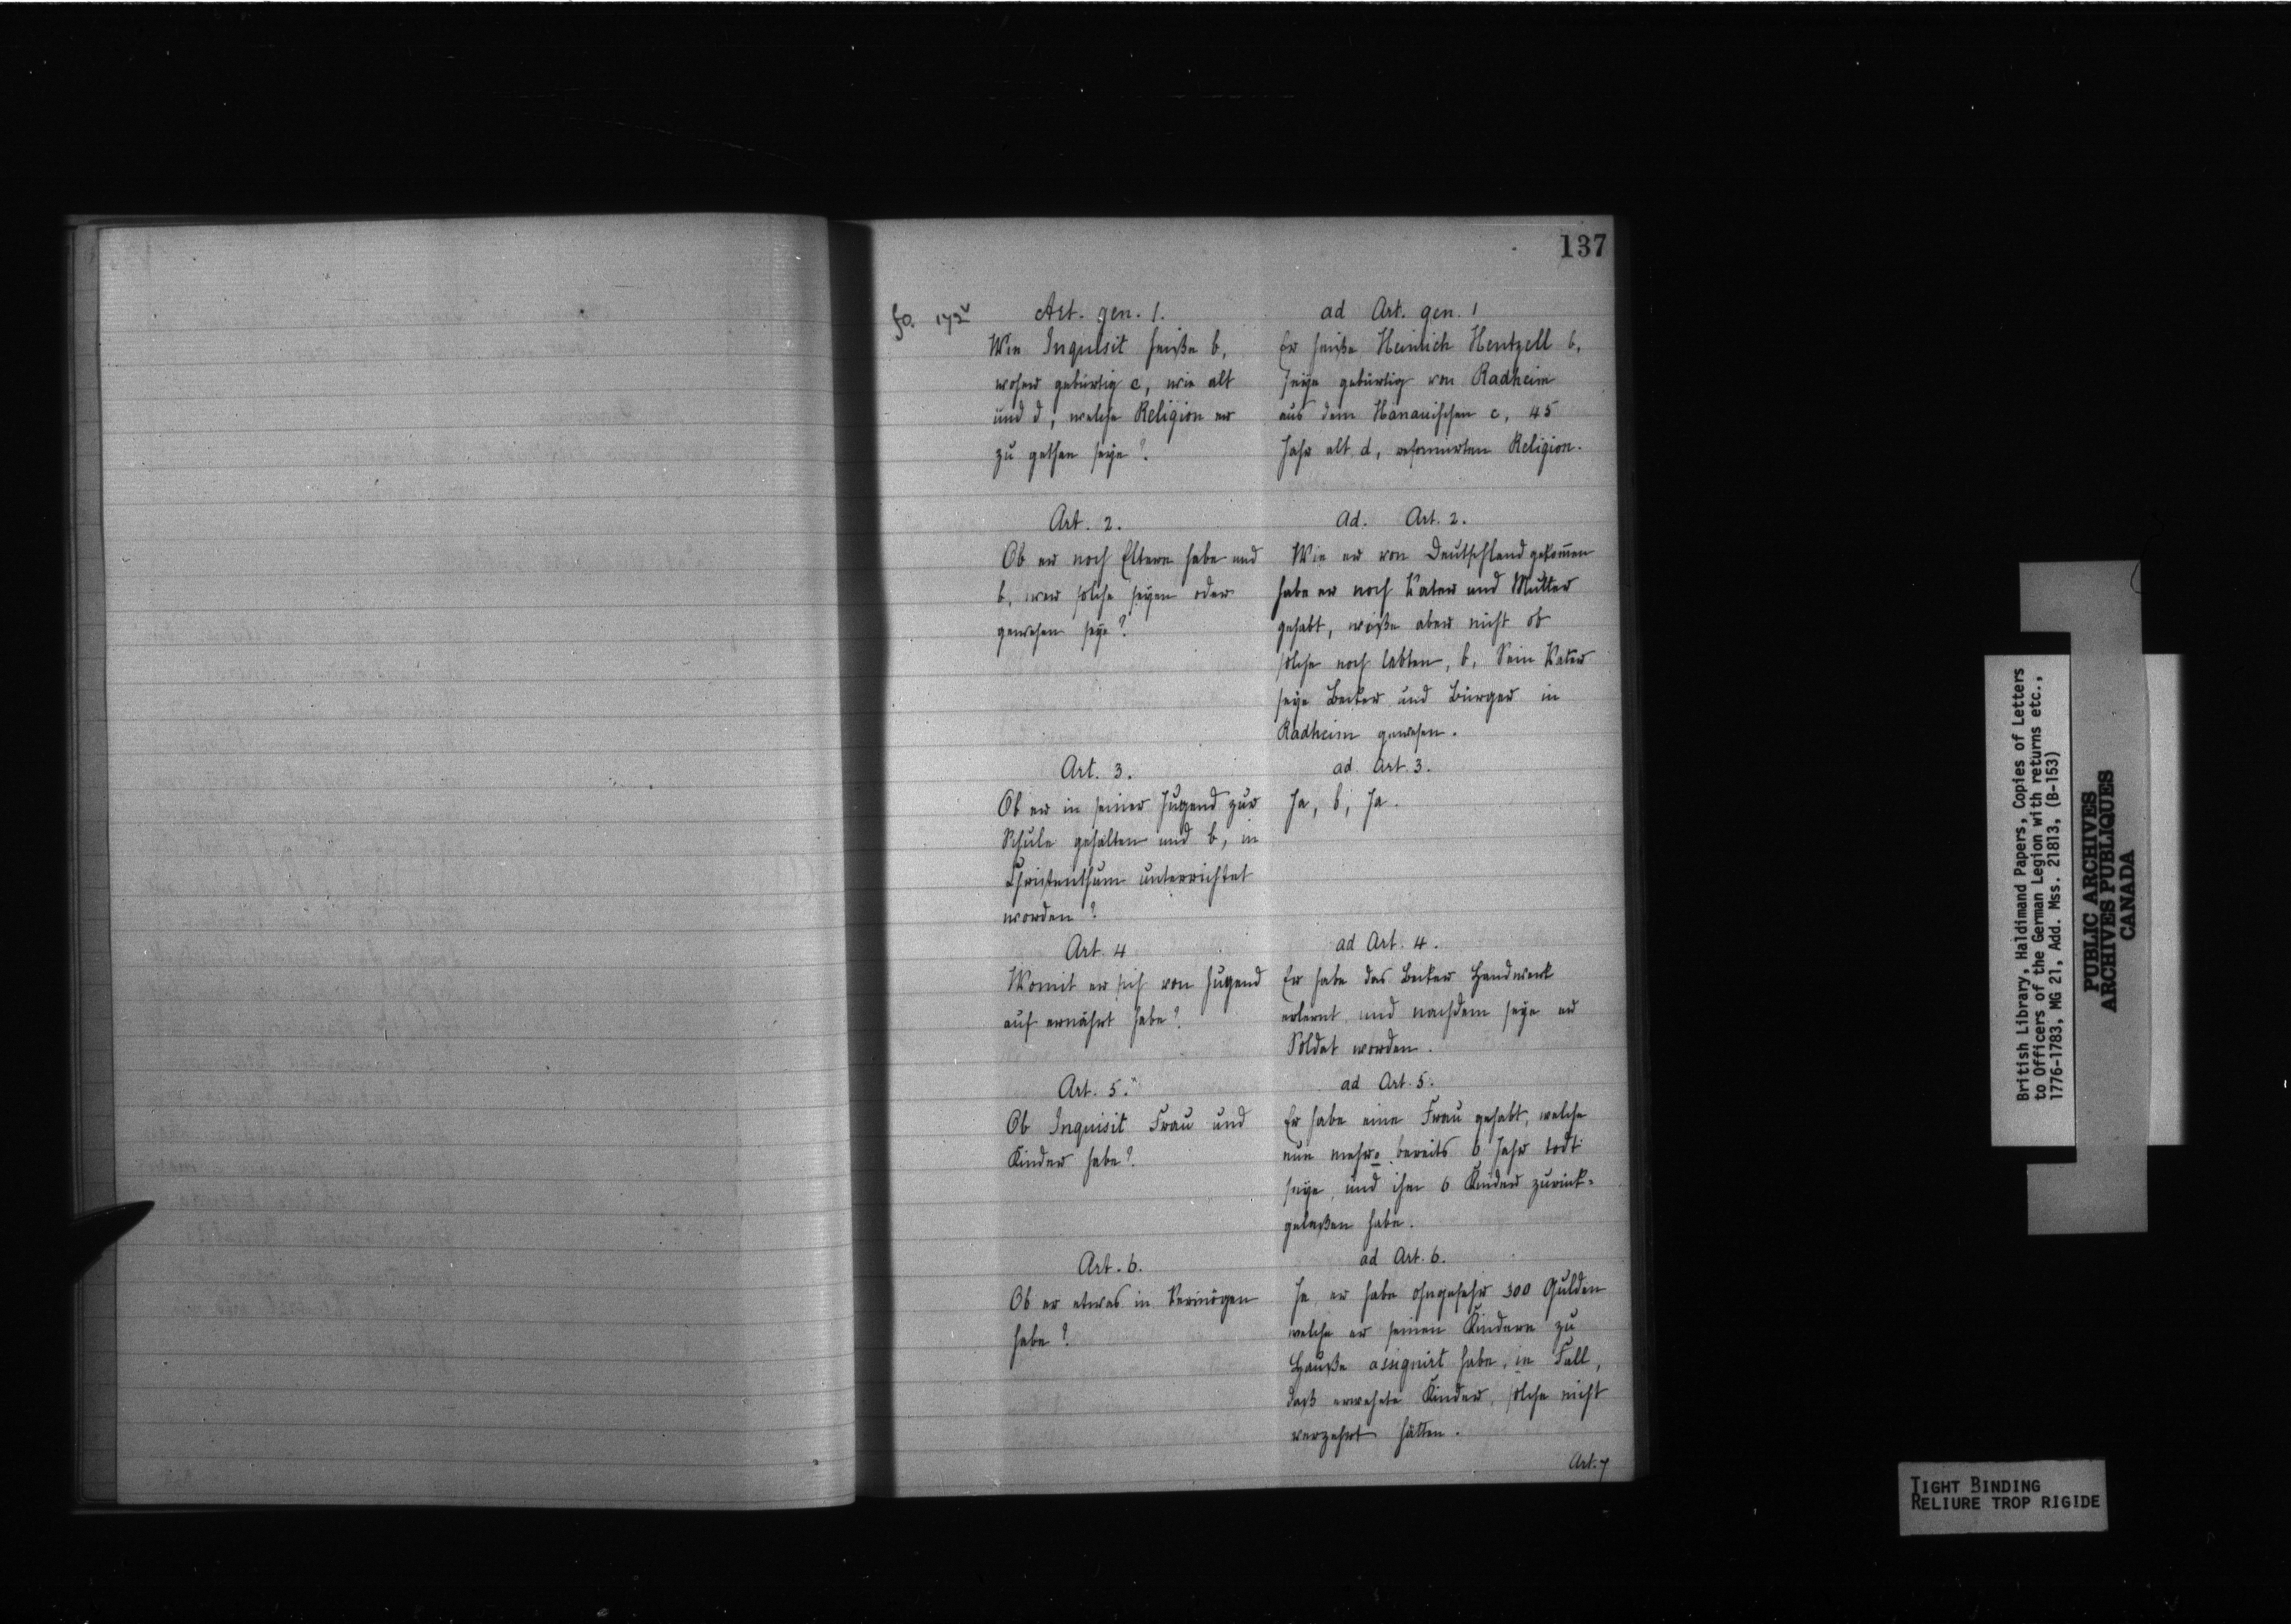 137
fo. 172v
Art. gen. 1.
Wie Inquisit heiße b,
woher gebürtig c, wie alt
und d, welche Religion er
zu gethan seye?
ad Art. gen. 1
Er heiße Heinrich Hentzell b,
seye gebürtig von Radheim
aus dem Hanauischen c, 45
Jahr alt d, reformirten Religion.
Art. 2.
Ob er noch Eltern habe und
b, wer solche seyen oder
gewesen seye?
Ad. Art. 2.
Wie er von Deutschland gekom̄en
habe er noch Vater und Mutter
gehabt, wiße aber nicht ob
solche noch lebten, b, Sein Vater
seye Becker und Bürger in
Radheim gewesen.
Art. 3.
Ob er in seiner Jugend zur
Schule gehalten und b, in
Christenthum unterrichtet
worden?
ad Art. 3.
Ja, b, Ja.
Art. 4
Womit er sich von Jugend
auf ernährt habe?
ad Art. 4.
Er habe das Becker Handwerk
erlernt und nachdem seye er
Soldat worden.
Art. 5.
Ob Inquisit Frau und
Kinder habe?
ad Art. 5.
Er habe eine Frau gehabt, welche
nun mehro bereits 6 Jahr todt
seye, und ihm 6 Kinder zurück-
gelaßen habe.
Art. 6.
Ob er etwas in Vermögen
habe?
ad Art. 6.
Ja, er habe ohngefehr 300 Gulden
welche er seinen Kindern zu
Hauße assignirt habe, in Fall,
daß erwehnte Kinder, solche nicht
verzehrt hätten.
Art. 7
British Library, Haldimand Papers, Copies of Letters
to Officers of the German Legion with returns etc.,
1776-1783, MG 21, Add. Mss. 21813, (B-153)
PUBLIC ARCHIVES
ARCHIVES PUBLIQUES
CANADA
TIGHT BINDING
RELIURE TROP RIGIDE